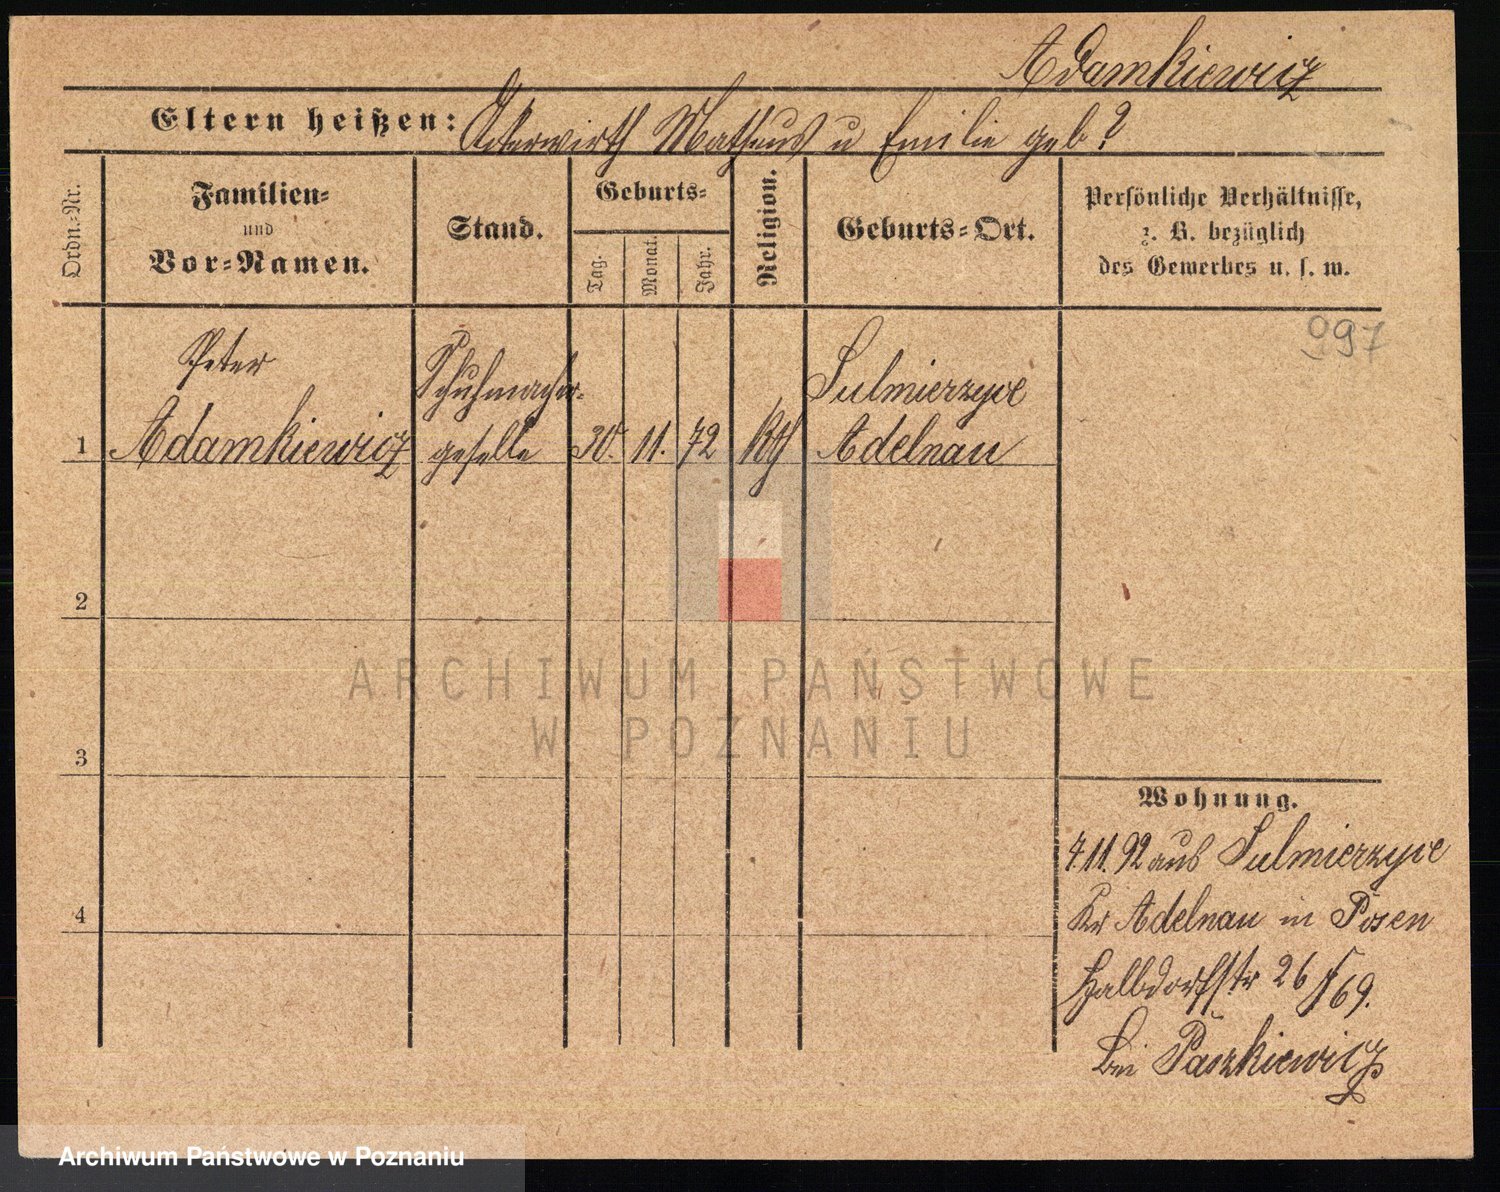 Adamkiewicz
Eltern heißen: Ackerwirth Matheus u Emilie geb?
Ordn.-Nr.
Familien-
und
Vor-Namen.
Stand.
Geburts-
Tag.
Monat.
Jahr.
Religion.
Geburts-Ort.
Persönliche Verhältnisse,
z. B. bezüglich
des Gewerbes u. s. w.
997
Peter
Adamkiewicz
Schuhmacher-
geselle
30. 11. 72
kth
Sulmierzyce
Adelnau
1
2
3
4
Wohnung.
7.11.92 aus Sulmierzyce
Kr Adelnau in Posen
Halbdorfstr 26 / 69.
bei Paszkiewicz
ARCHIWUM PAŃSTWOWE
W POZNANIU
Archiwum Państwowe w Poznaniu